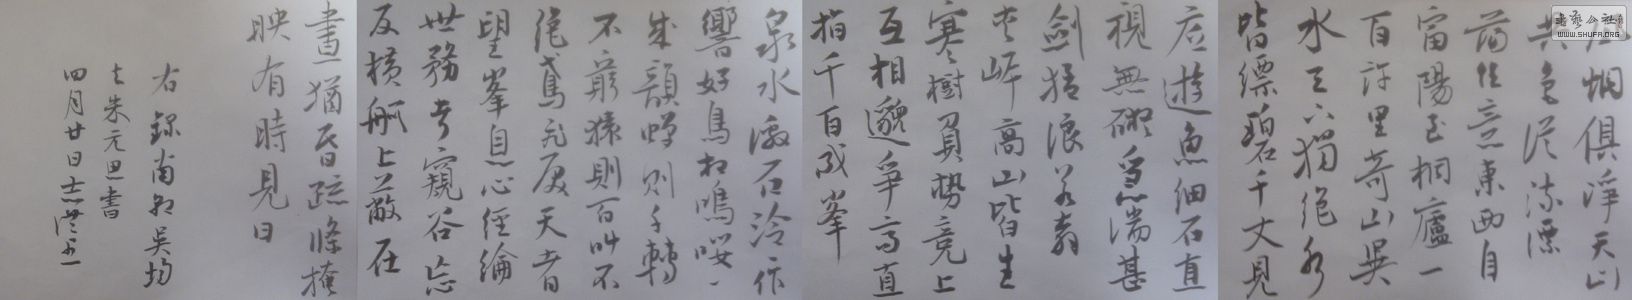 烟俱淨天山
共色從流漂
蕩任意東西自
富陽至桐廬一
百許里奇山異
水天下獨絕水
皆縹碧千丈見
底遊魚細石直
視無礙急湍甚
劍猛浪若奔
夾岸高山皆生
寒樹負勢競上
互相邈爭高直
指千百成峯
泉水激石泠作
響好鳥相鳴嚶々
成韻蟬則千轉
不窮猿則百叫不
絕鳶飛戾天者
望峯息心經綸
世務者窺谷忘
反橫柯上蔽在
晝猶昏疏條掩
映有時見日
右錄南朝吳均
与朱元思書
四月廿日志
書藝公社
WWW.SHUFA.ORG